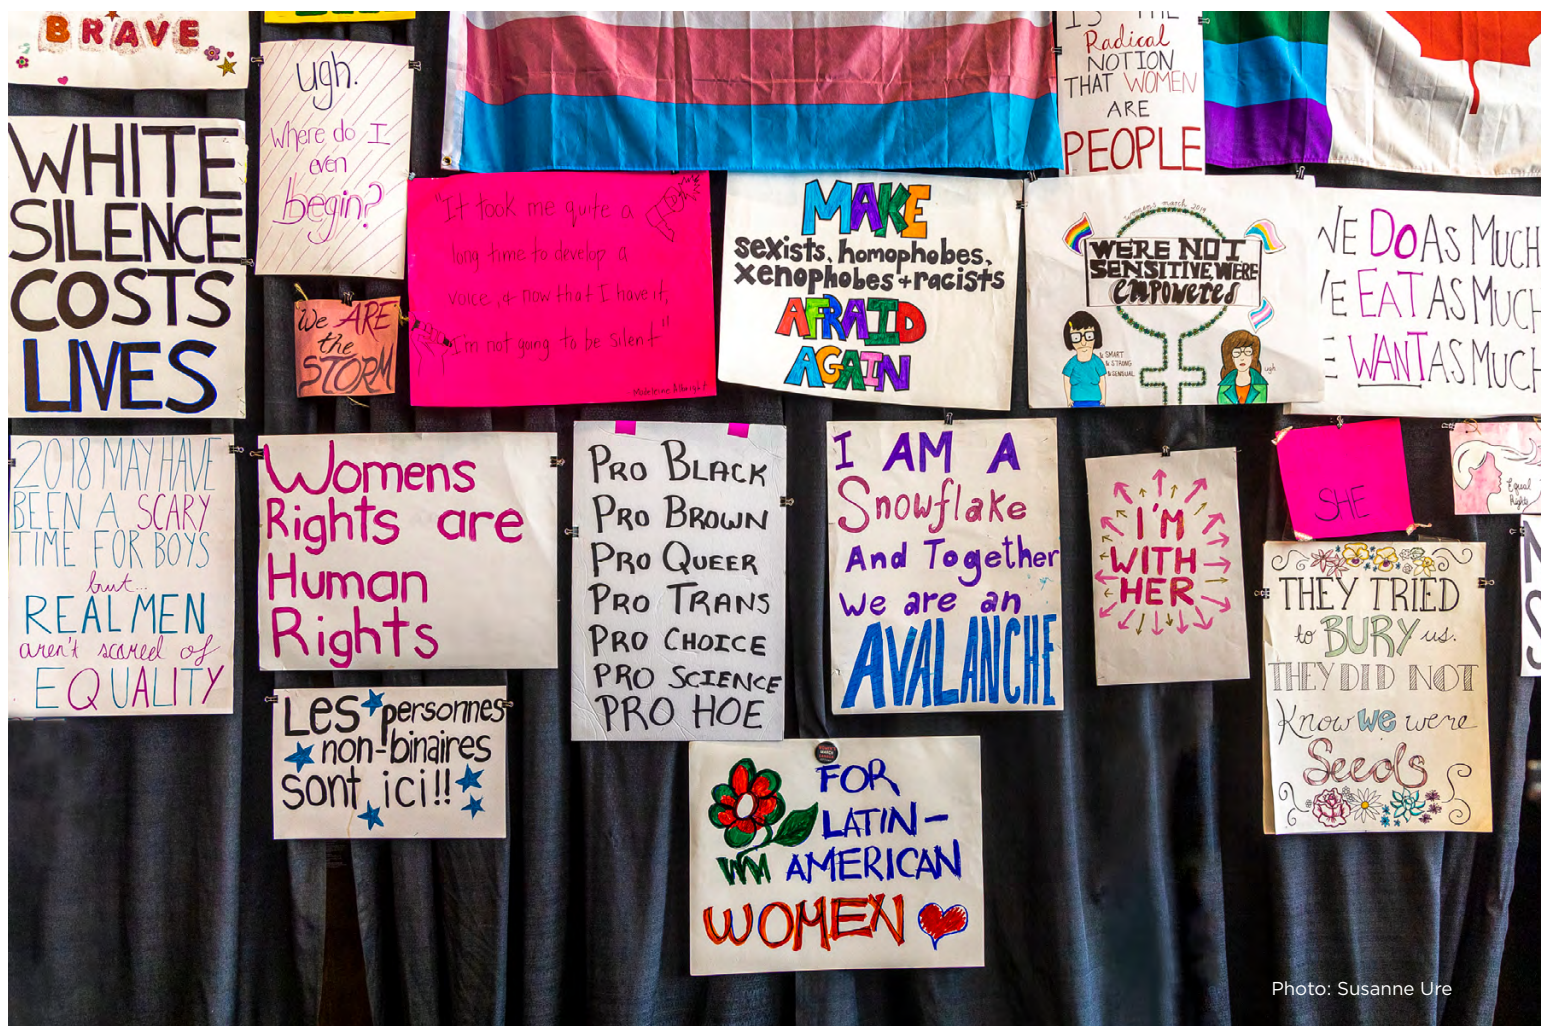 BRAVE
ugh.
Where do I
even
begin?
IS THE
Radical
NOTION
THAT WOMEN
ARE
PEOPLE
WHITE
SILENCE
COSTS
LIVES
We ARE
the
STORM
"It took me quite a
long time to develop a
voice, & now that I have it,
I'm not going to be silent"
Madeleine Albright
MAKE
sexists, homophobes,
xenophobes + racists
AFRAID
AGAIN
womens march 2019
WERE NOT
SENSITIVE, WERE
EMPOWERED
& SMART
& STRONG
& SENSUAL
ugh
WE DO AS MUCH
WE EAT AS MUCH
E WANT AS MUCH
2018 MAY HAVE
BEEN A SCARY
TIME FOR BOYS
but...
REAL MEN
aren't scared of
EQUALITY
Womens
Rights are
Human
Rights
PRO BLACK
PRO BROWN
PRO QUEER
PRO TRANS
PRO CHOICE
PRO SCIENCE
PRO HOE
I AM A
Snowflake
And Together
we are an
AVALANCHE
I'M
WITH
HER
SHE
Equal
Rights
THEY TRIED
to BURY us.
THEY DID NOT
Know we were
Seeds
Les personnes
non-binaires
sont ici!!
FOR
LATIN-
AMERICAN
WOMEN
WM
Photo: Susanne Ure